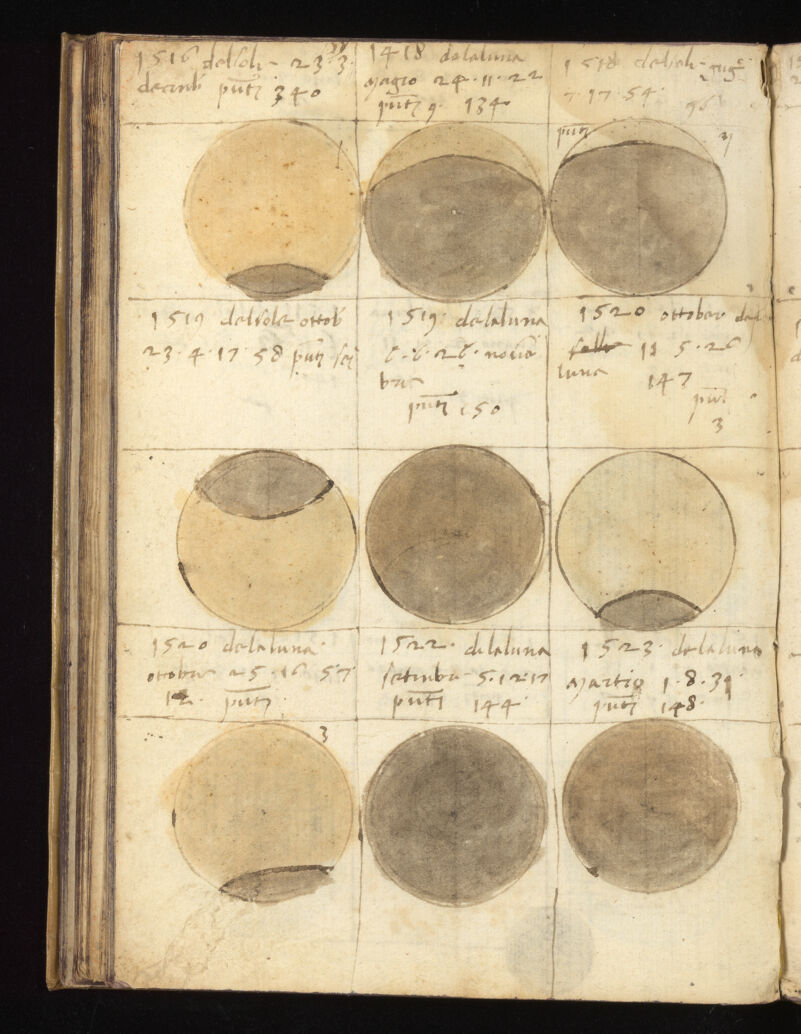 1516 del sole 23 3
decemb puti 340
1418 de la luna
magio 24 · 11 · 22
puti 9 · 134
1518 del sole
7 · 17 · 54
puti
1519 del sole ottob
23 · 4 · 17 · 58 puti sei
1519 · de la luna
6 · 6 · 26 · novem
bre
puti 150
1520 ottober del
11 5 · 26
luna
147
puti
3
1520 de la luna
ottober 25 · 16 57
12 · puti
3
1522 · di la luna
setember 5 · 12 · 17
puti 144
1523 · de la luna
Martio 1 · 8 · 39
puti 148